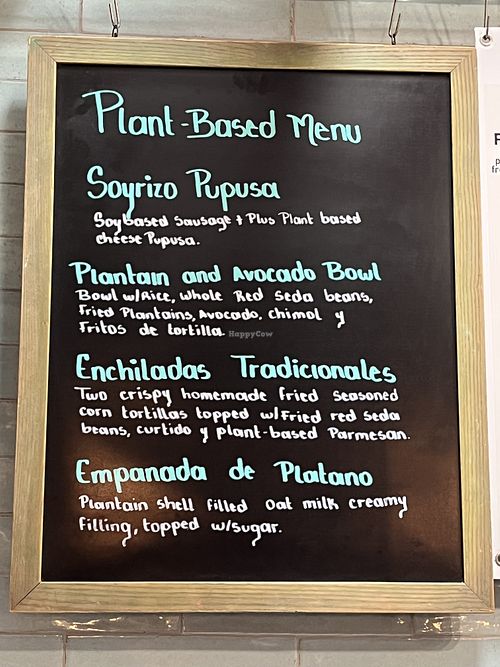 Plant-Based Menu
Soyrizo Pupusa
Soy based sausage + Plus Plant based
cheese Pupusa.
Plantain and Avocado Bowl
Bowl w/Rice, whole Red Seda beans,
Fried Plantains, Avocado, chimol y
Fritos de tortilla.
HappyCow
Enchiladas Tradicionales
Two crispy homemade fried seasoned
corn tortillas topped w/Fried red seda
beans, curtido y plant-based Parmesan.
Empanada de Platano
Plantain shell filled oat milk creamy
filling, topped w/sugar.